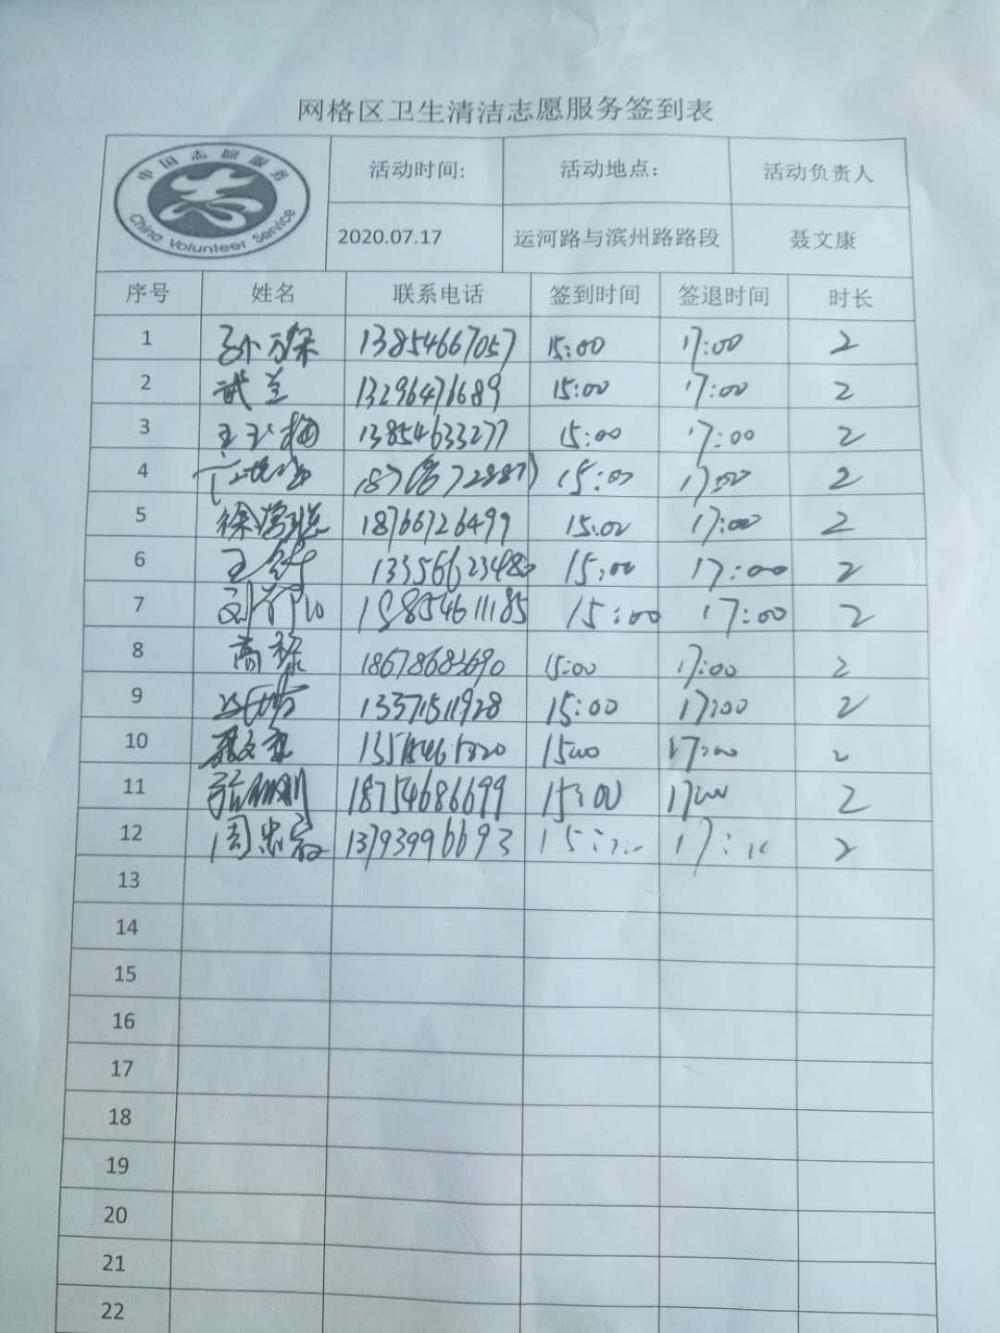 网格区卫生清洁志愿服务签到表
中国志愿服务
China Volunteer Service
活动时间: 活动地点: 活动负责人
2020.07.17 运河路与滨州路路段 聂文康
序号 姓名 联系电话 签到时间 签退时间 时长
1 13854667057 15:00 17:00 2
2 武兰 13296471689 15:00 17:00 2
3 王玉梅 13854633277 15:00 17:00 2
4 15:00 17:00 2
5 18766726499 15:00 17:00 2
6 王 13356623480 15:00 17:00 2
7 15854611185 15:00 17:00 2
8 高 18678683690 15:00 17:00 2
9 13371511928 15:00 17:00 2
10 聂文康 1500 17:00 2
11 18754686699 15:00 1700 2
12 周忠 13793996693 2
13
14
15
16
17
18
19
20
21
22